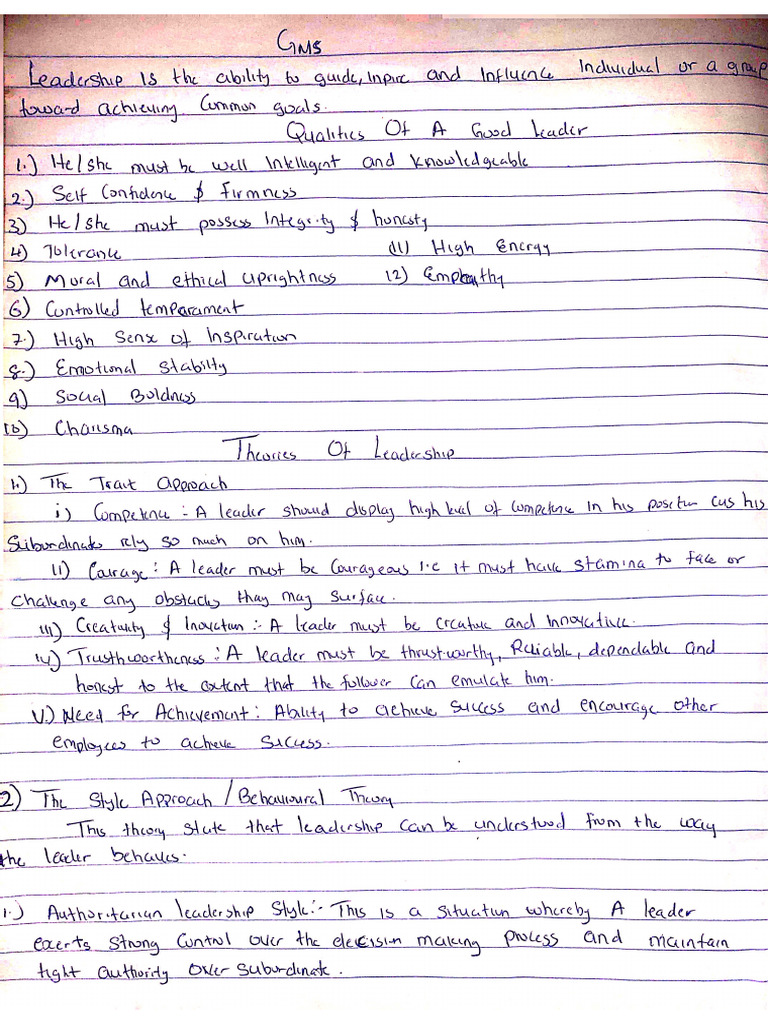 GNS
Leadership Is the ability to guide, Inpire and Influence Individual or a group
toward achieving Common goals.
Qualities Of A Good Leader
1.) He/she must be well Intelligent and Knowledgeable
2.) Self Confidence & Firmness
3) He/she must possess Integrity & honesty
4) Tolerance (11) High Energy
5) Moral and ethical Uprightness 12) Empathy
6) Controlled temparament
7.) High Sense of Inspiration
8.) Emotional Stability
9) Social Boldness
10) Charisma
Theories Of Leadership
1.) The Trait Approach
i) Competence :- A leader should display high level of Competence In his position cus his
Subordinate rely so much on him.
ii) Courage : A leader must be Courageous i.e it must have stamina to face or
Challenge any obstacles they may surface.
iii) Creativity & Inovation :- A leader must be creative and Innovative.
iv) Trusthwortheness : A leader must be thrustworthy, Reliable, dependable and
honest to the extent that the follower can emulate him.
V.) Need for Achievement : Ability to achieve success and encourage other
employees to achieve success.
2) The Style Approach / Behavioural Theory
This theory state that leadership can be understood from the way
the leader behaves.
1.) Authoritarian leadership Style :- This is a situation whereby A leader
exerts strong Control over the decision making process and maintain
tight authority over subordinate.